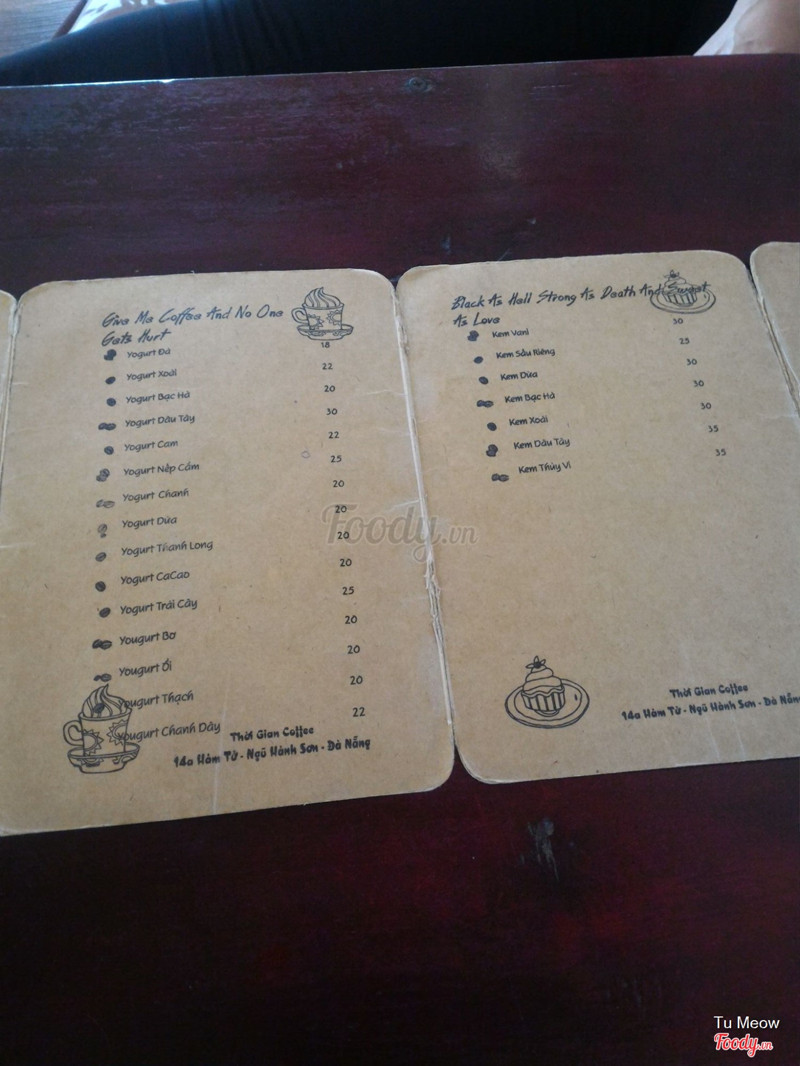 Give Me Coffee And No One
Gets Hurt
Yogurt Đá 18
Yogurt Xoài 22
Yogurt Bạc Hà 20
Yogurt Dâu Tây 30
Yogurt Cam 22
Yogurt Nếp Cẩm 25
Yogurt Chanh 20
Yogurt Dứa 20
Yogurt Thanh Long 20
Yogurt CaCao 20
Yogurt Trái Cây 25
Yougurt Bơ 20
Yougurt Ổi 20
Yougurt Thạch 20
Yougurt Chanh Dây 22
Thời Gian Coffee
14a Hàm Tử - Ngũ Hành Sơn - Đà Nẵng
Black As Hell Strong As Death And Sweet
As Love
Kem Vani 30
Kem Sầu Riêng 25
Kem Dừa 30
Kem Bạc Hà 30
Kem Xoài 30
Kem Dâu Tây 35
Kem Thúy Vi 35
Thời Gian Coffee
14a Hàm Tử - Ngũ Hành Sơn - Đà Nẵng
Foody.vn
Tu Meow
Foody.vn